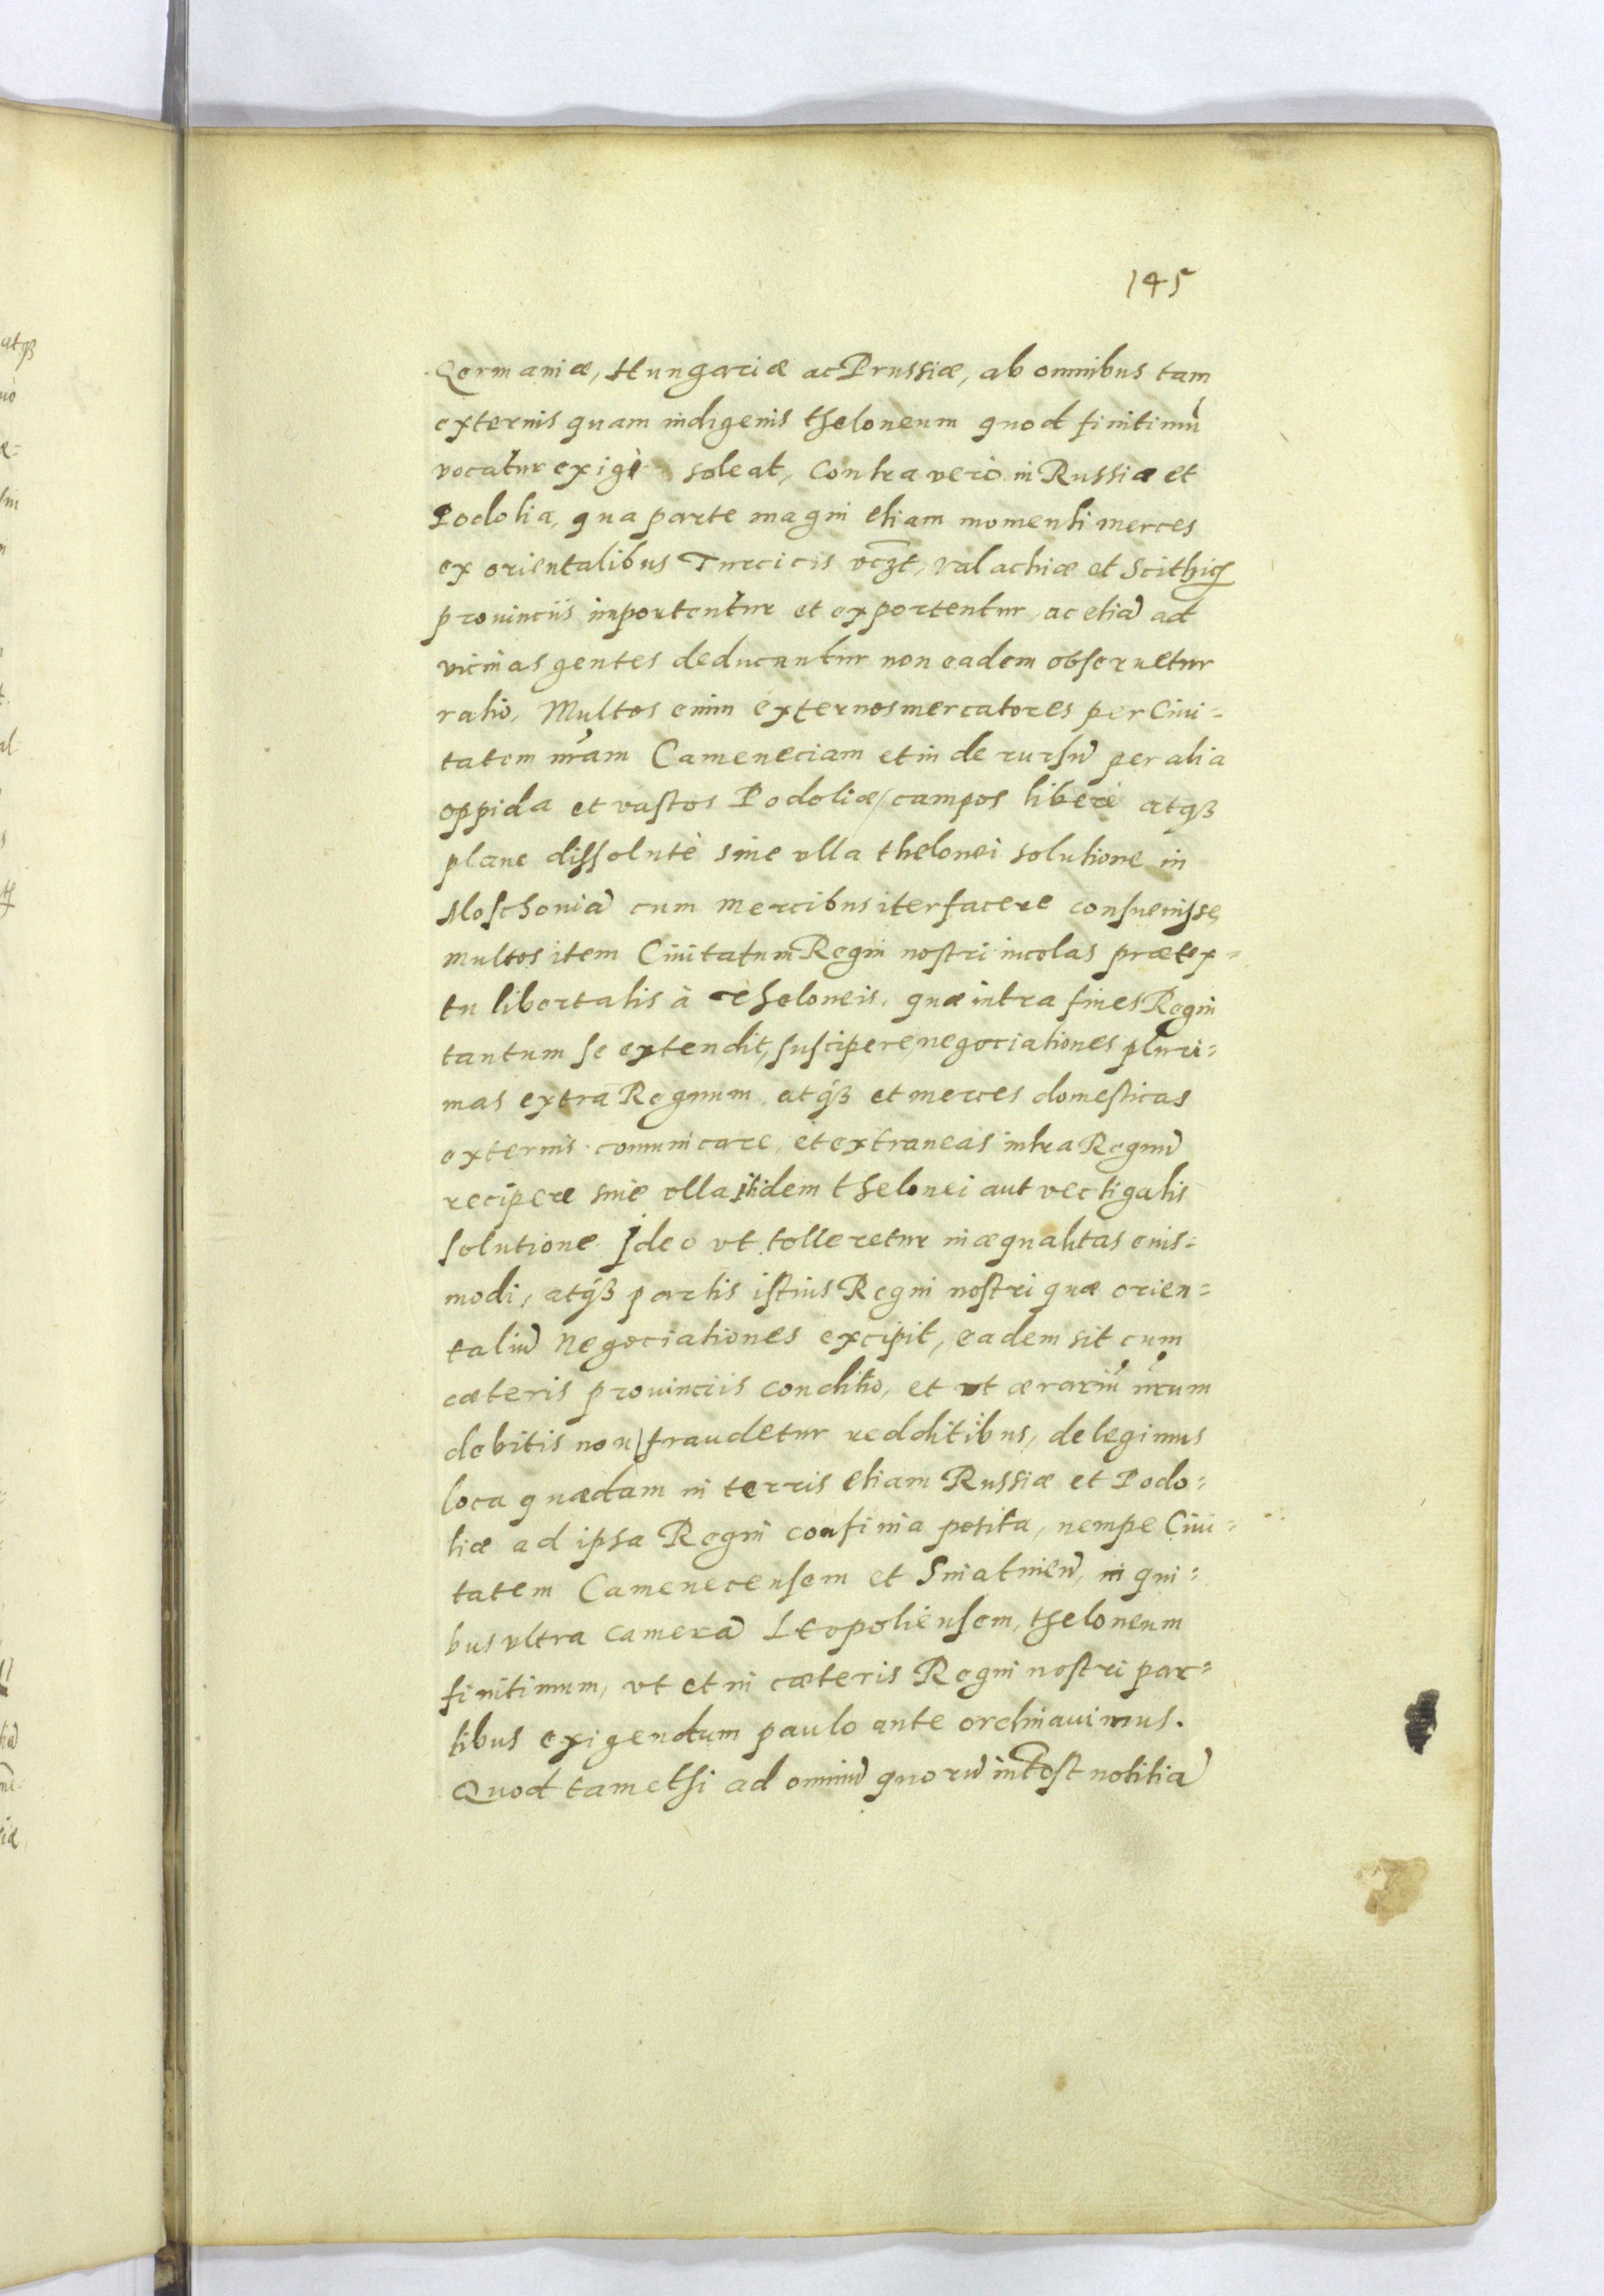 145
Germaniæ, Hungariæ ac Prussiæ, ab omnibus tam
externis quam indigenis theloneum quod finitimũ
vocatur exigi soleat, Contra vero in Russia et
Podolia, qua parte magni etiam momenti merces
ex orientalibus Turcicis vczt, Valachiæ et Scithicis
prouinciis importentur et exportentur, ac etiã ad
vicinas gentes deducantur non eadem obseruetur
ratio, Multos enim externos mercatores per Ciui=
tatem nram Cameneciam et inde rursũ per alia
oppida et vastos Podoliæ campos liberè atqꝫ
plane dissolutè sine vlla thelonei solutione in
Moschouiã cum mercibus iter facere consueuisse,
multos item Ciuitatum Regni nostri incolas prætex=
tu libertatis à theloneis, quæ intra fines Regni
tantum se extendit, suscipere negociationes pluri=
mas extra Regnum, atqꝫ et merces domesticas
externis comunicare, et extraneas intra Regnũ
recipere sine vlla itidem thelonei aut vectigalis
solutione. Ideo vt tolleretur inæqualitas eius=
modi, atqꝫ partis istius Regni nostri quæ orien=
taliũ negociationes excipit, eadem sit cum
cæteris prouinciis conditio, et vt ærariũ nrum
debitis non fraudetur redditibus, delegimus
loca quædam in terris etiam Russiæ et Podo=
liæ ad ipsa Regni confinia posita, nempe Ciui=
tatem Camenecensem et Sniatineñ, in qui=
bus vltra camerã Leopoliensem, theloneum
finitimum, vt et in cæteris Regni nostri par=
tibus exigendum paulo ante ordinauimus.
Quod tametsi ad omniũ quorũ intest notitiã